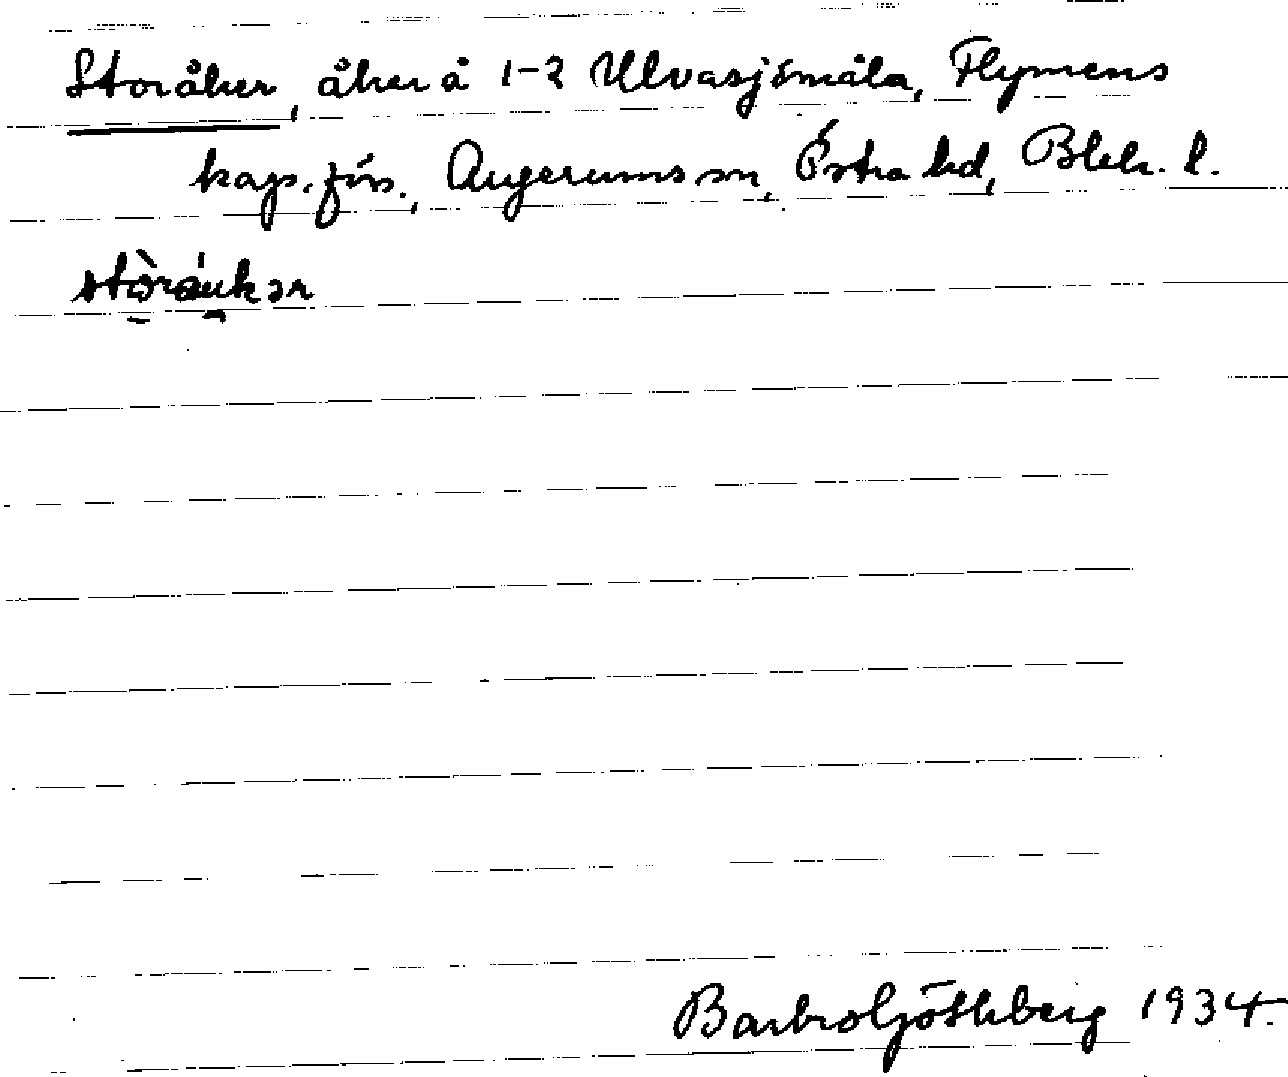 Storåker, åker å 1-2 Ulvasjömåla, Flymens
kap.förs., Augerums sn, Östra hd, Blek. l.
stòráukər
Barbro Göthberg 1934.